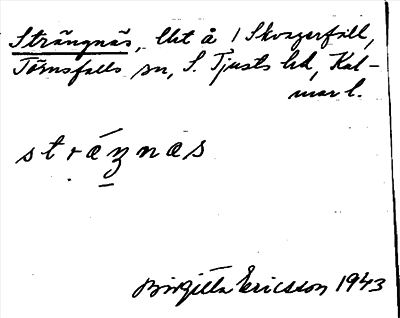 Strängnäs, lht å 1 Skvagerfäll,
Törnsfalls sn, S. Tjusts hd, Kal-
mar l.
sträŋnäs
Birgitta Ericsson 1943